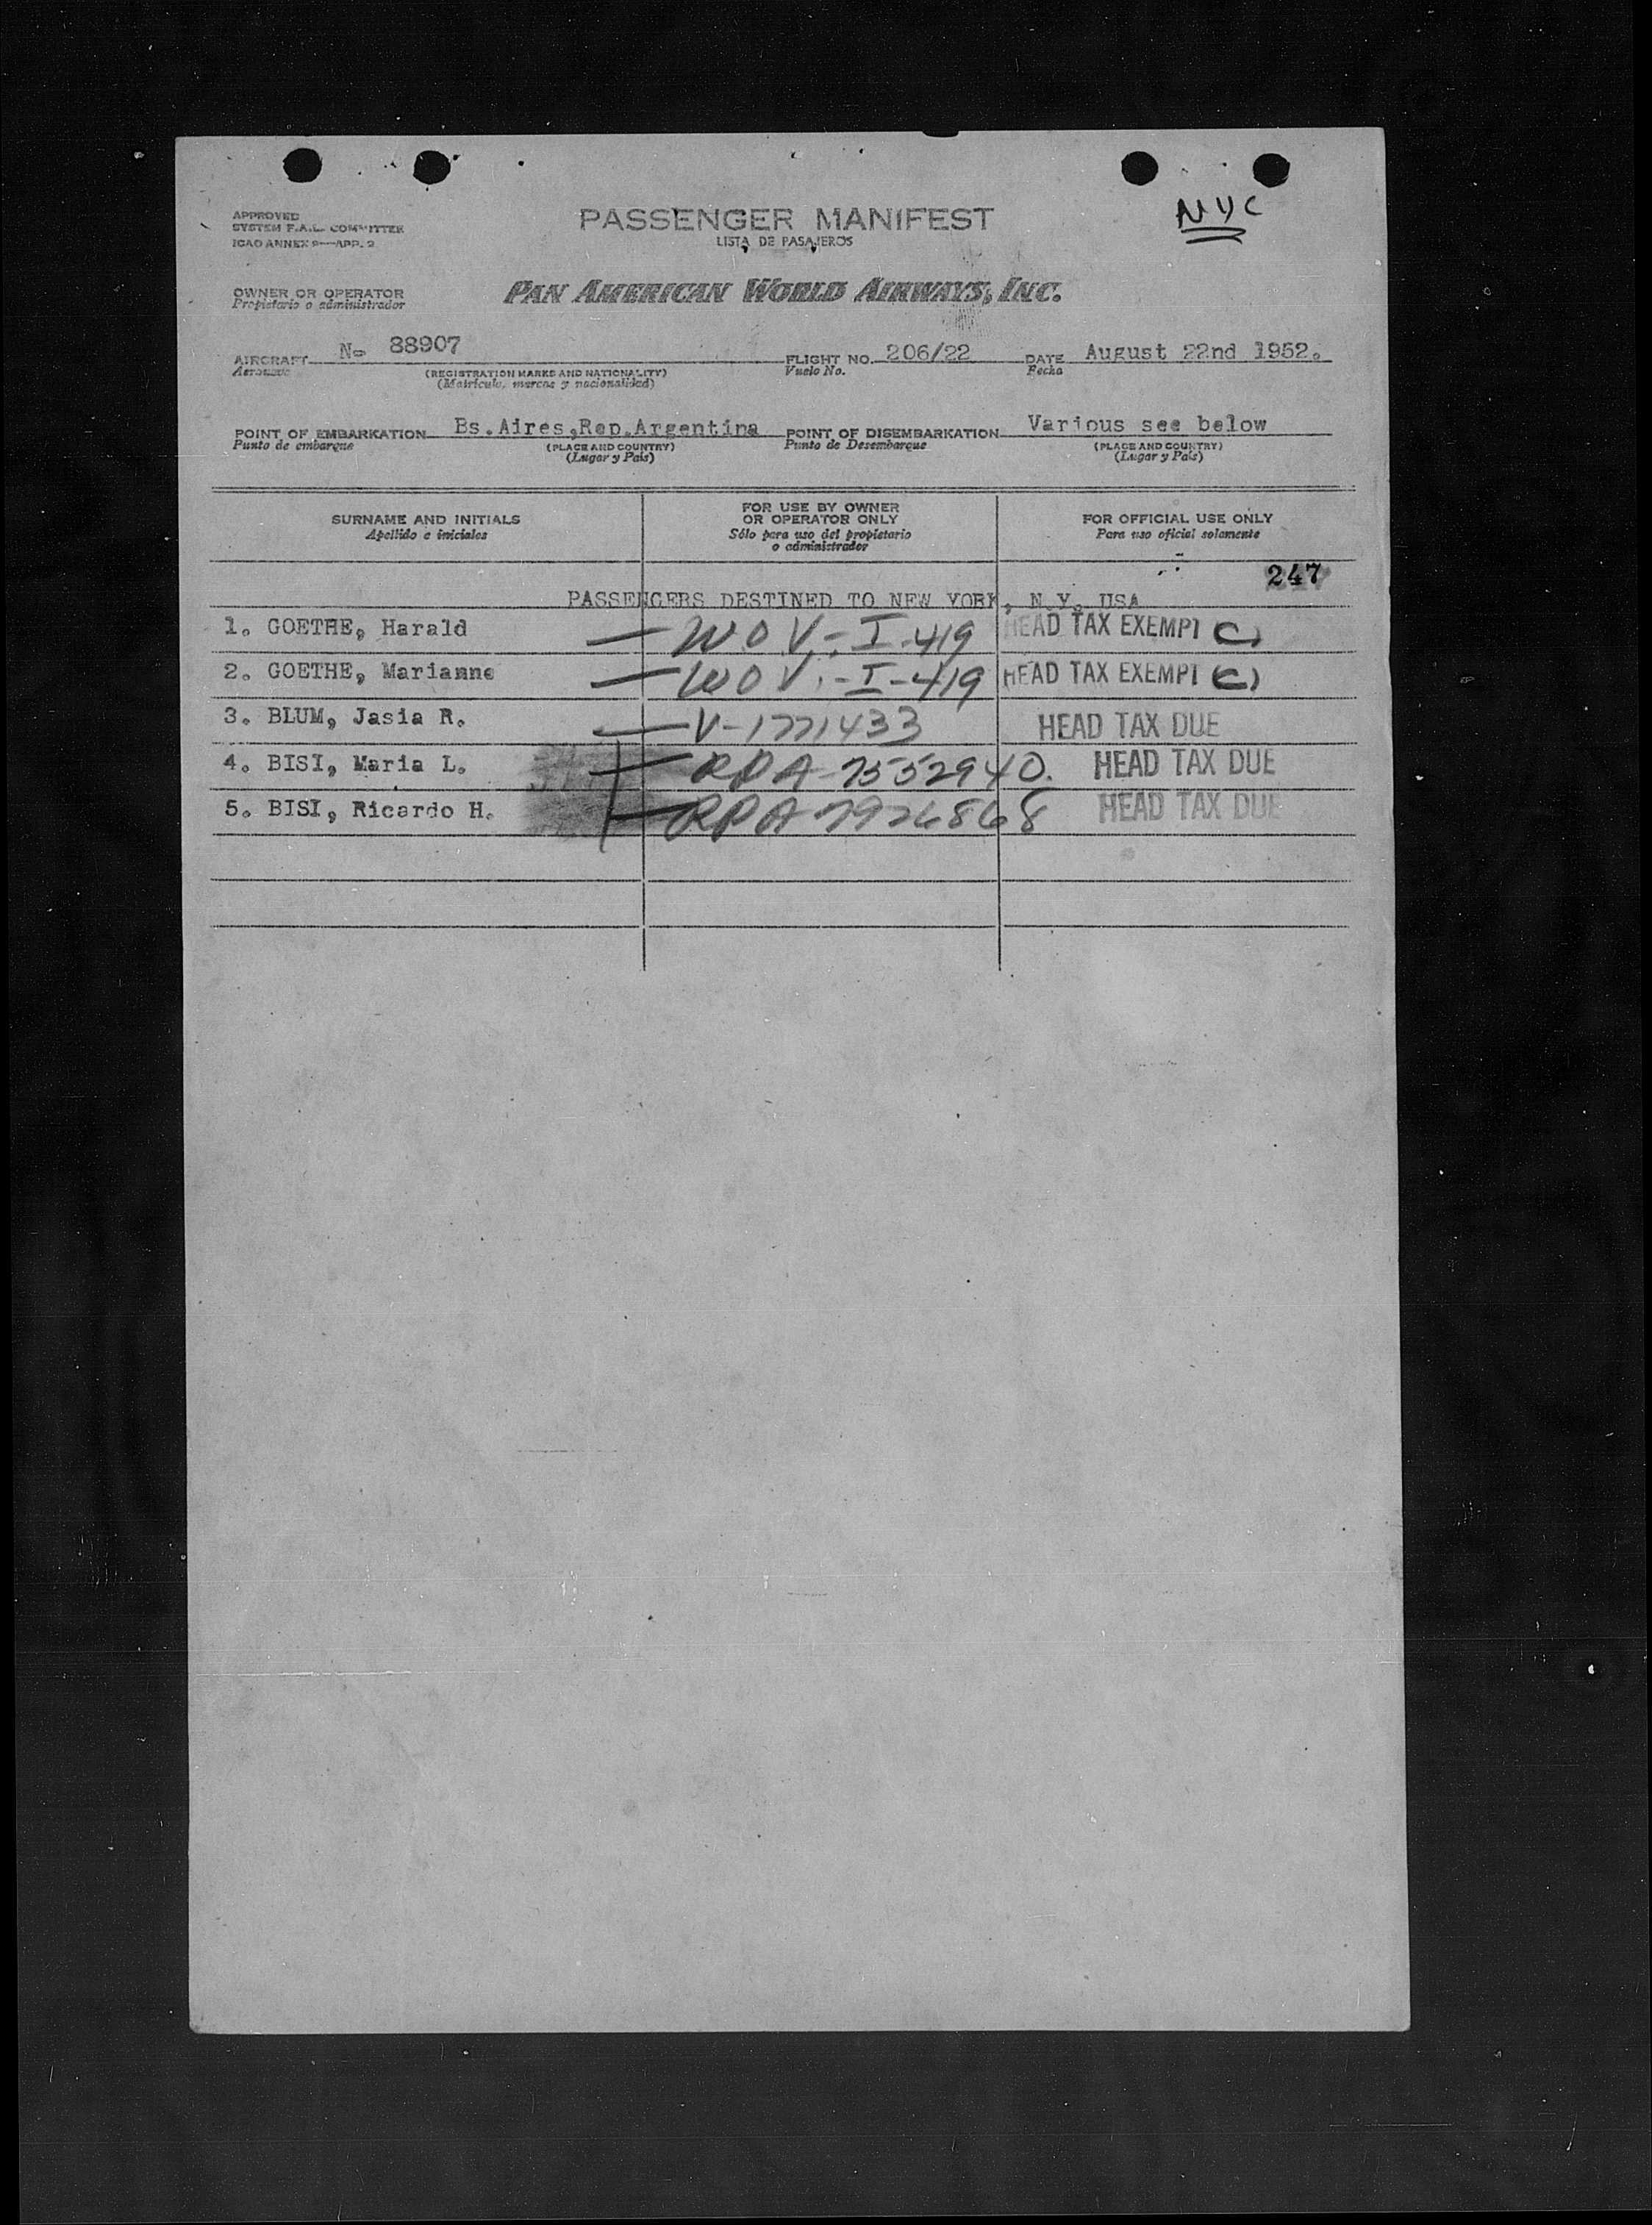 NYC
APPROVED
SYSTEM F.A.L. COMMITTEE
ICAO ANNEX 9—APP. 2
PASSENGER MANIFEST
LISTA DE PASAJEROS
OWNER OR OPERATOR
Propietario o administrador
PAN AMERICAN WORLD AIRWAYS, INC.
AIRCRAFT N- 88907 FLIGHT NO. 206/22 DATE August 22nd 1952.
Aeronave (REGISTRATION MARKS AND NATIONALITY) Vuelo No. Fecha
(Matrícula, marcas y nacionalidad)
POINT OF EMBARKATION Bs.Aires,Rep.Argentina POINT OF DISEMBARKATION Various see below
Punto de embarque (PLACE AND COUNTRY) Punto de Desembarque (PLACE AND COUNTRY)
(Lugar y País) (Lugar y País)
SURNAME AND INITIALS
Apellido e iniciales
FOR USE BY OWNER
OR OPERATOR ONLY
Sólo para uso del propietario
o administrador
FOR OFFICIAL USE ONLY
Para uso oficial solamente
247
PASSENGERS DESTINED TO NEW YORK, N.Y. USA
1. GOETHE, Harald — WOV.-I-419 HEAD TAX EXEMPT C)
2. GOETHE, Marianne — WOV.-I-419 HEAD TAX EXEMPT C)
3. BLUM, Jasia R. — V-1771433 HEAD TAX DUE
4. BISI, Maria L. — RPA-7552940. HEAD TAX DUE
5. BISI, Ricardo H. — RPA 7926868 HEAD TAX DUE